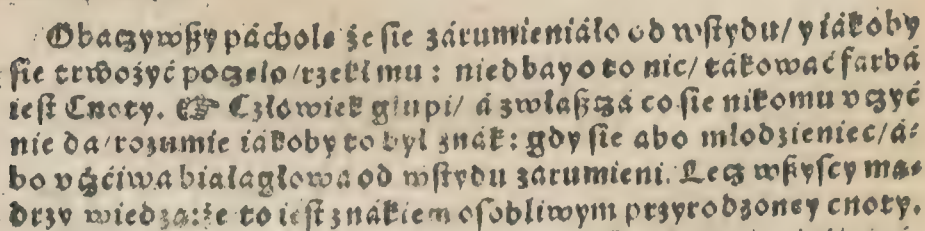 Obaczywßy páchole że ſie zárumieniáło od wſtydu/ y iákoby
ſie trwożyć poczęło/rzekł mu: niedbay o to nic/ tákować farbá
ieſt Cnoty. ☞ Człowiek głupi/ á zwłaßczá co ſie nikomu vczyć
nie da/rozumie iákoby to był znák: gdy ſie abo młodzieniec/á⸗
bo vczćiwa białagłowa od wſtydu zarumieni. Lecz wßyſcy mą⸗
drzy wiedzą:że to ieſt znákiem oſobliwym przyrodzoney cnoty.